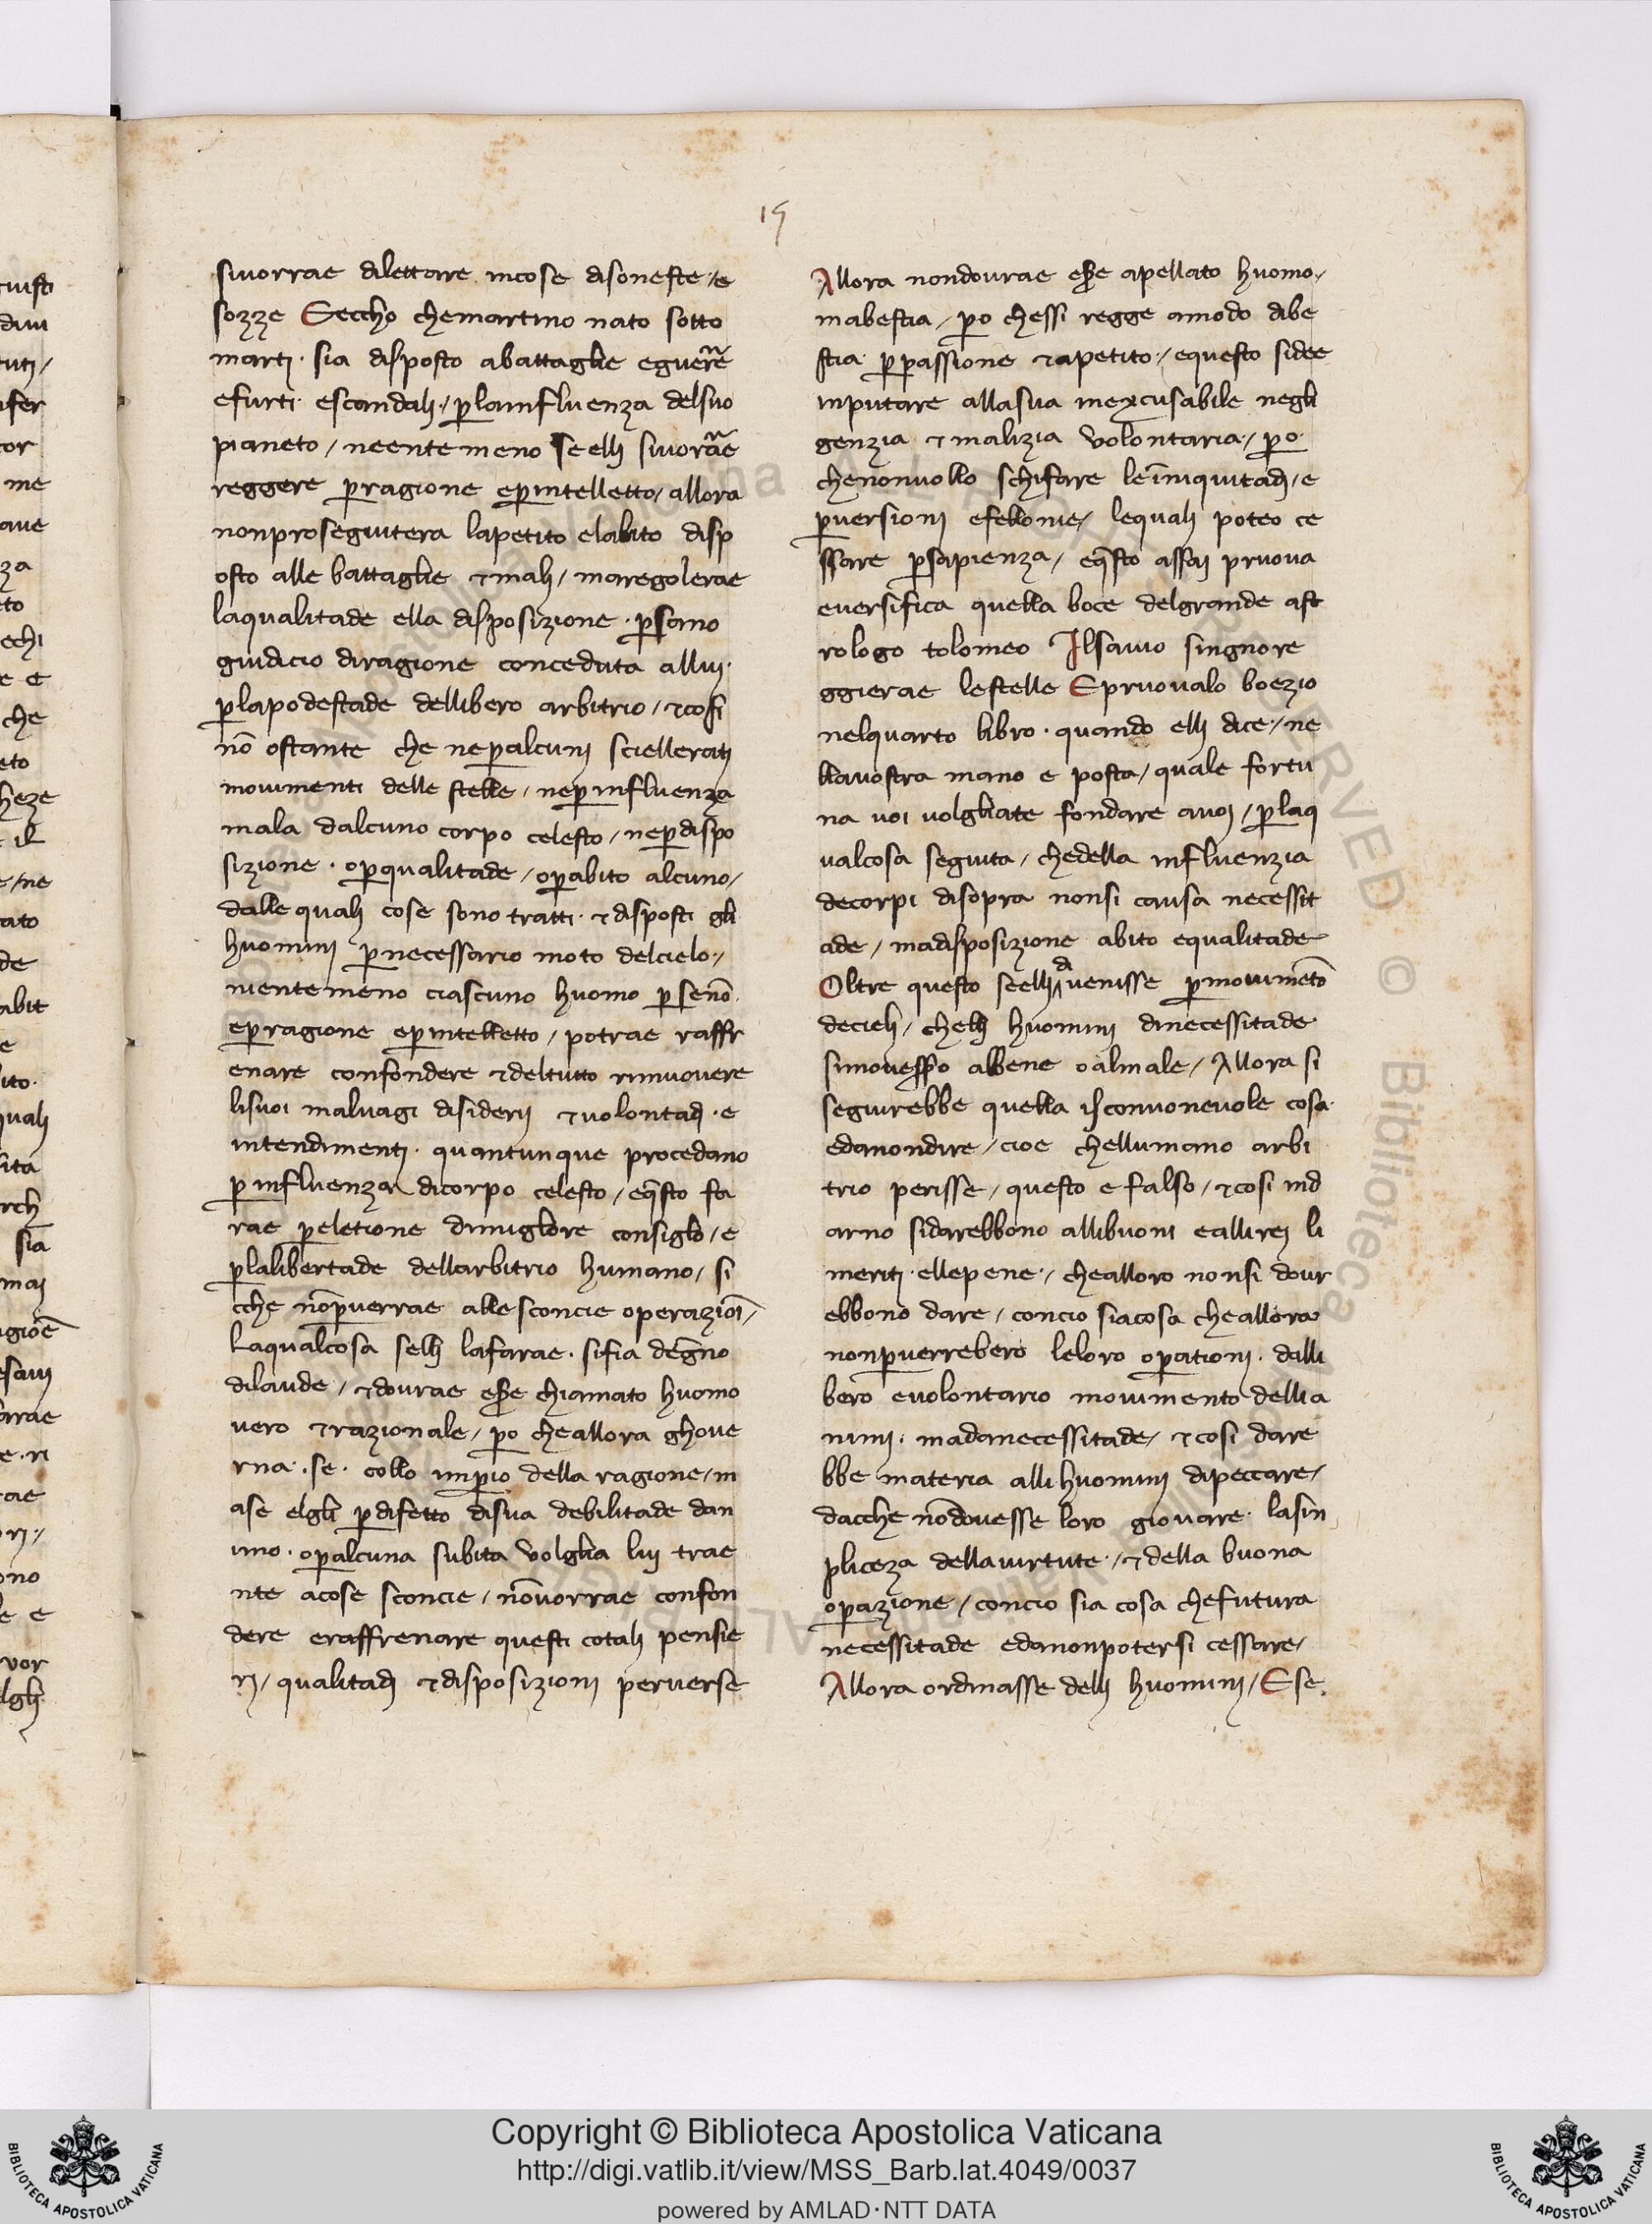 15
siuorrae dilettare incose disoneste / e
sozze Seccho chemartino nato sotto
marti · sia disposto abattaglie eguerre
efurti · escandali / p̱lainfluenza delsuo
pianeto / neente meno se elli siuorrae
reggere p̱ragione ep̱intelletto / allora
nonproseguitera lapetito elabito disp
osto alle battaglie ⁊mali / maregolerae
laqualitade ella disposizione · p̱sano
giudicio diragione conceduta allui ·
p̱lapodestade dellibero arbitrio / ⁊cosi
nō ostante che nep̱alcuni sciellerati
mouimenti delle stelle / nep̱influenza
mala dalcuno corpo celesto / nep̱dispo
sizione · op̱qualitade / op̱abito alcuno /
dalle quali cose sono tratti · ⁊disposti gli
huomini p̱necessario moto delcielo /
nientemeno ciascuno huomo p̱ senō
ep̱ragione ep̱intelletto / potrae raffr
enare confondere ⁊deltutto rimuouere
lisuoi maluagi disiderij ⁊volontadi · e
intendimenti · quantunque procedano
p̱influenza dicorpo celesto / eq̄sto fa
rae p̱eletione dimigliore consiglio / e
p̱lalibertade dellarbitrio humano / si
cche nōp̱uerrae alle sconcie operazioī /
Laqualcosa selli lafarae · sifia dengno
dilaude / ⁊dourae eſſe chiamato huomo
uero ⁊razionale / p̱o cheallora ghoue
rna · se · collo imp̱io della ragione / m
ase elgli p̱difetto disua debilitade dan
imo · op̱alcuna subita volglia lui trae
nte acose sconcie / nōuorrae confon
dere eraffrenare questi cotali pensie
ri / qualitadi ⁊disposizioni peruerse
Allora nondourae eſſe apellato huomo /
mabestia / p̱o chessi regge amodo dibe
stia · p̱passione ⁊apetito / equesto sidee
inputare allasua inexcusabile negli
genzia ⁊ malizia volontaria / p̱o
chenonuollo schifare leīniquitadi / e
p̱uersioni efellonie / lequali poteo ce
ssare p̱sapienza / eq̄sto assai pruoua
euersifica quella boce delgrande ast
rologo tolomeo Ilsauio singnore
ggierae lestelle Epruoualo boezio
nelquarto libro · quando elli dice / ne
llauostra mano e posta / quale fortu
na uoi uolgliate fondare auoi / p̱laq
ualcosa seguita / chedella influenzia
decorpi disopra nonsi causa necessit
ade / madisposizione abito equalitade
Oltre questo seelli auenisse p̱mouimētō
decieli / chelli huomini dinecessitade
simouessono albene oalmale / Allora si
seguirebbe quella isconuoneuole cosa
edanondire / cioe chellumano arbi
trio perisse / questo e falso / ⁊cosi ind
arno sidarebbono allibuoni eallirei li
meriti · ellepene / cheалloro nonsi dour
ebbono dare / concio siacosa cheallora
nonp̱uerrebero leloro op̱ationi · dalli
bero euolontario mouimento dellia
nimi · madanecessitade / ⁊cosi dare
bbe materia alli huomini dipeccare /
dacche nōdouesse loro giouare · lasin
pliceza dellauirtute / ⁊della buona
op̱azione / concio sia cosa chefutura
necessitade edanonpotersi cessare /
Allora ordinasse delli huomini / E se
Copyright © Biblioteca Apostolica Vaticana
http://digi.vatlib.it/view/MSS_Barb.lat.4049/0037
powered by AMLAD·NTT DATA
BIBLIOTECA APOSTOLICA VATICANA
BIBLIOTECA APOSTOLICA VATICANA